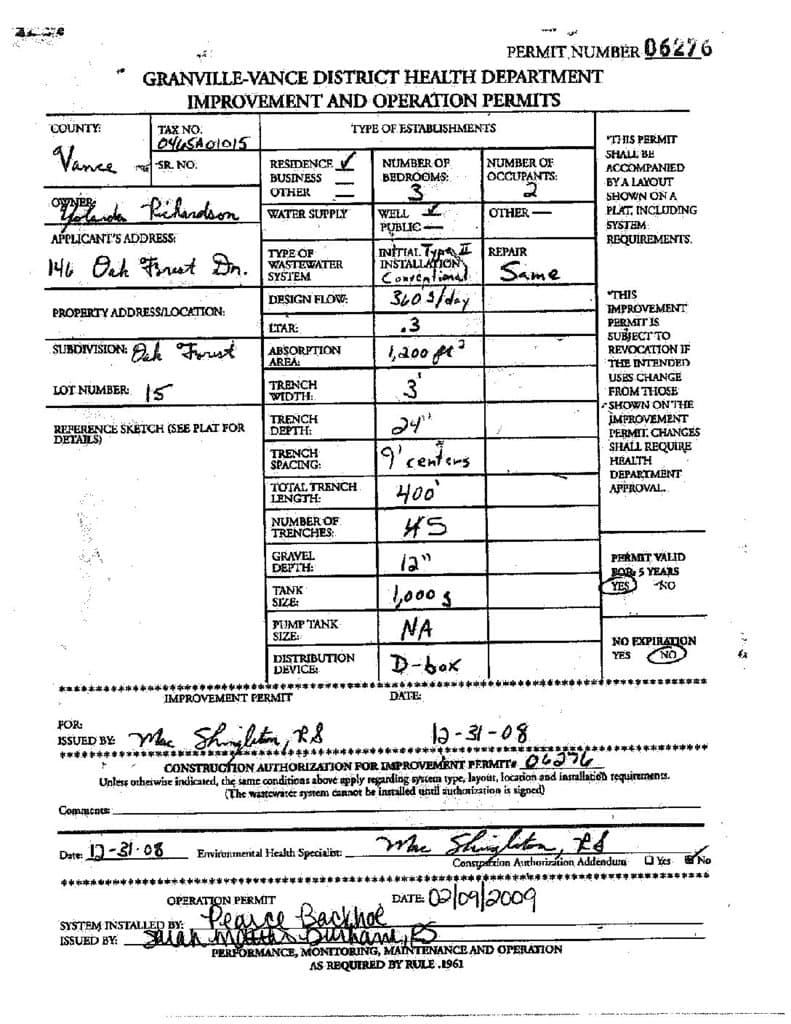 PERMIT NUMBER 06276
GRANVILLE-VANCE DISTRICT HEALTH DEPARTMENT
IMPROVEMENT AND OPERATION PERMITS
COUNTY: Vance
TAX NO. 0465A01015
SR. NO.
OWNER: Yolanda Richardson
APPLICANT'S ADDRESS:
146 Oak Forest Dr.
PROPERTY ADDRESS/LOCATION:
SUBDIVISION: Oak Forest
LOT NUMBER: 15
REFERENCE SKETCH (SEE PLAT FOR
DETAILS)
TYPE OF ESTABLISHMENTS
RESIDENCE ✓
BUSINESS
OTHER
NUMBER OF
BEDROOMS:
3
NUMBER OF
OCCUPANTS:
2
WATER SUPPLY
WELL ✓
PUBLIC
OTHER
TYPE OF
WASTEWATER
SYSTEM
INITIAL Type II
INSTALLATION
Conventional
REPAIR
Same
DESIGN FLOW: 360 g/day
LTAR: .3
ABSORPTION
AREA: 1,200 ft²
TRENCH
WIDTH: 3'
TRENCH
DEPTH: 24"
TRENCH
SPACING: 9' centers
TOTAL TRENCH
LENGTH: 400'
NUMBER OF
TRENCHES: 5
GRAVEL
DEPTH: 12"
TANK
SIZE: 1,000 g
PUMP TANK
SIZE: NA
DISTRIBUTION
DEVICE: D-box
*THIS PERMIT
SHALL BE
ACCOMPANIED
BY A LAYOUT
SHOWN ON A
PLAT, INCLUDING
SYSTEM
REQUIREMENTS.
*THIS
IMPROVEMENT
PERMIT IS
SUBJECT TO
REVOCATION IF
THE INTENDED
USES CHANGE
FROM THOSE
SHOWN ON THE
IMPROVEMENT
PERMIT. CHANGES
SHALL REQUIRE
HEALTH
DEPARTMENT
APPROVAL.
PERMIT VALID
FOR 5 YEARS
YES NO
NO EXPIRATION
YES NO
IMPROVEMENT PERMIT DATE:
FOR:
ISSUED BY: Mac Shingleton, RS 12-31-08
CONSTRUCTION AUTHORIZATION FOR IMPROVEMENT PERMIT# 06276
Unless otherwise indicated, the same conditions above apply regarding system type, layout, location and installation requirements.
(The wastewater system cannot be installed until authorization is signed)
Comments:
Date: 12-31-08 Environmental Health Specialist: Mac Shingleton, RS
Construction Authorization Addendum Yes No
OPERATION PERMIT DATE: 02/09/2009
SYSTEM INSTALLED BY: Pearce Backhoe
ISSUED BY: Sarah Durham, RS
PERFORMANCE, MONITORING, MAINTENANCE AND OPERATION
AS REQUIRED BY RULE .1961